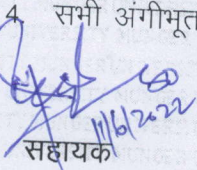 4. सभी अंगीभूत
11/6/2022
सहायक